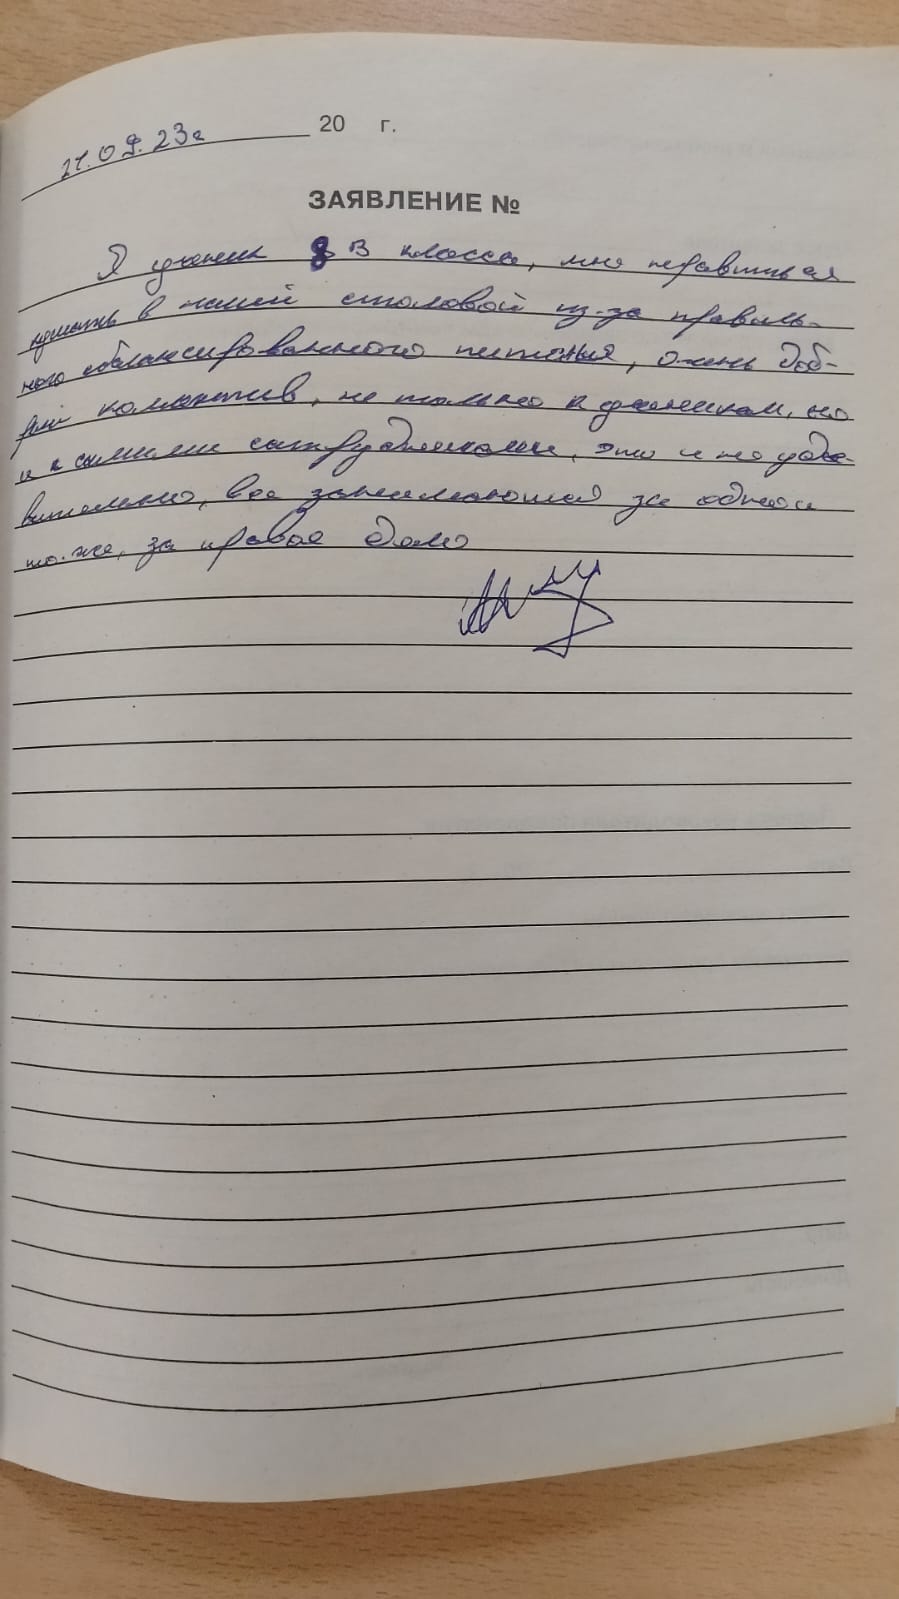 21.09.23г 20 г.
ЗАЯВЛЕНИЕ №
Я ученик 8 В класса, мне нравиться
кушать в нашей столовой из-за правиль-
ного сбалансированного питания, очень доб-
рый коллектив, не только к ученикам, но
и к сотрудниками, это и не удев-
вительно, все занимаються за одной
то-же, за правое дело